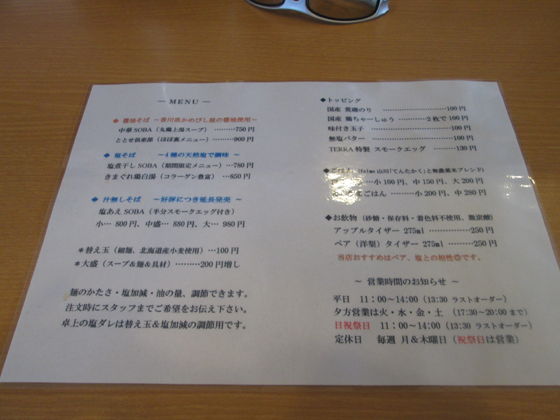 ― MENU ―
◆ 醤油そば ～香川県かめびし屋の醤油使用～
中華SOBA(丸鶏上湯スープ) ………750円
ととせ倶楽部(ほぼ裏メニュー) ………900円
◆ 塩そば ～4種の天然塩で調味 ～
塩煮干しSOBA(期間限定メニュー) …780円
きまぐれ鶏白湯(コラーゲン豊富) …850円
◆ 汁無しそば ～好評につき延長発売 ～
塩あえSOBA(半分スモークエッグ付き)
小… 800円、中盛… 880円、大… 980円
＊替え玉(細麺、北海道産小麦使用)…100円
＊大盛(スープ&麺&具材)………200円増し
麺のかたさ・塩加減・油の量、調節できます。
注文時にスタッフまでご希望をお伝え下さい。
卓上の塩ダレは替え玉&塩加減の調節用です。
◆トッピング
国産 焼海のり ………………100円
国産 鶏ちゃーしゅう ………2枚で100円
味付き玉子 …………………100円
無塩バター …………………100円
TERRA特製 スモークエッグ ……130円
(「てんたかく」と無農薬米ブレンド)
小100円、中150円、大200円
ごはん 小200円、中280円
◆お飲物(砂糖・保存料・着色料不使用、微炭酸)
アップルタイザー 275ml ………………250円
ペア(洋梨)タイザー 275ml ……………250円
当店おすすめはペア、塩との相性◎です。
～ 営業時間のお知らせ ～
平日 11：00～14:00 (13:30 ラストオーダー)
夕方営業は火・水・金・土 (17:30～20:00まで)
日祝祭日 11：00～14:00 (13:30 ラストオーダー)
定休日 毎週 月&木曜日(祝祭日は営業)